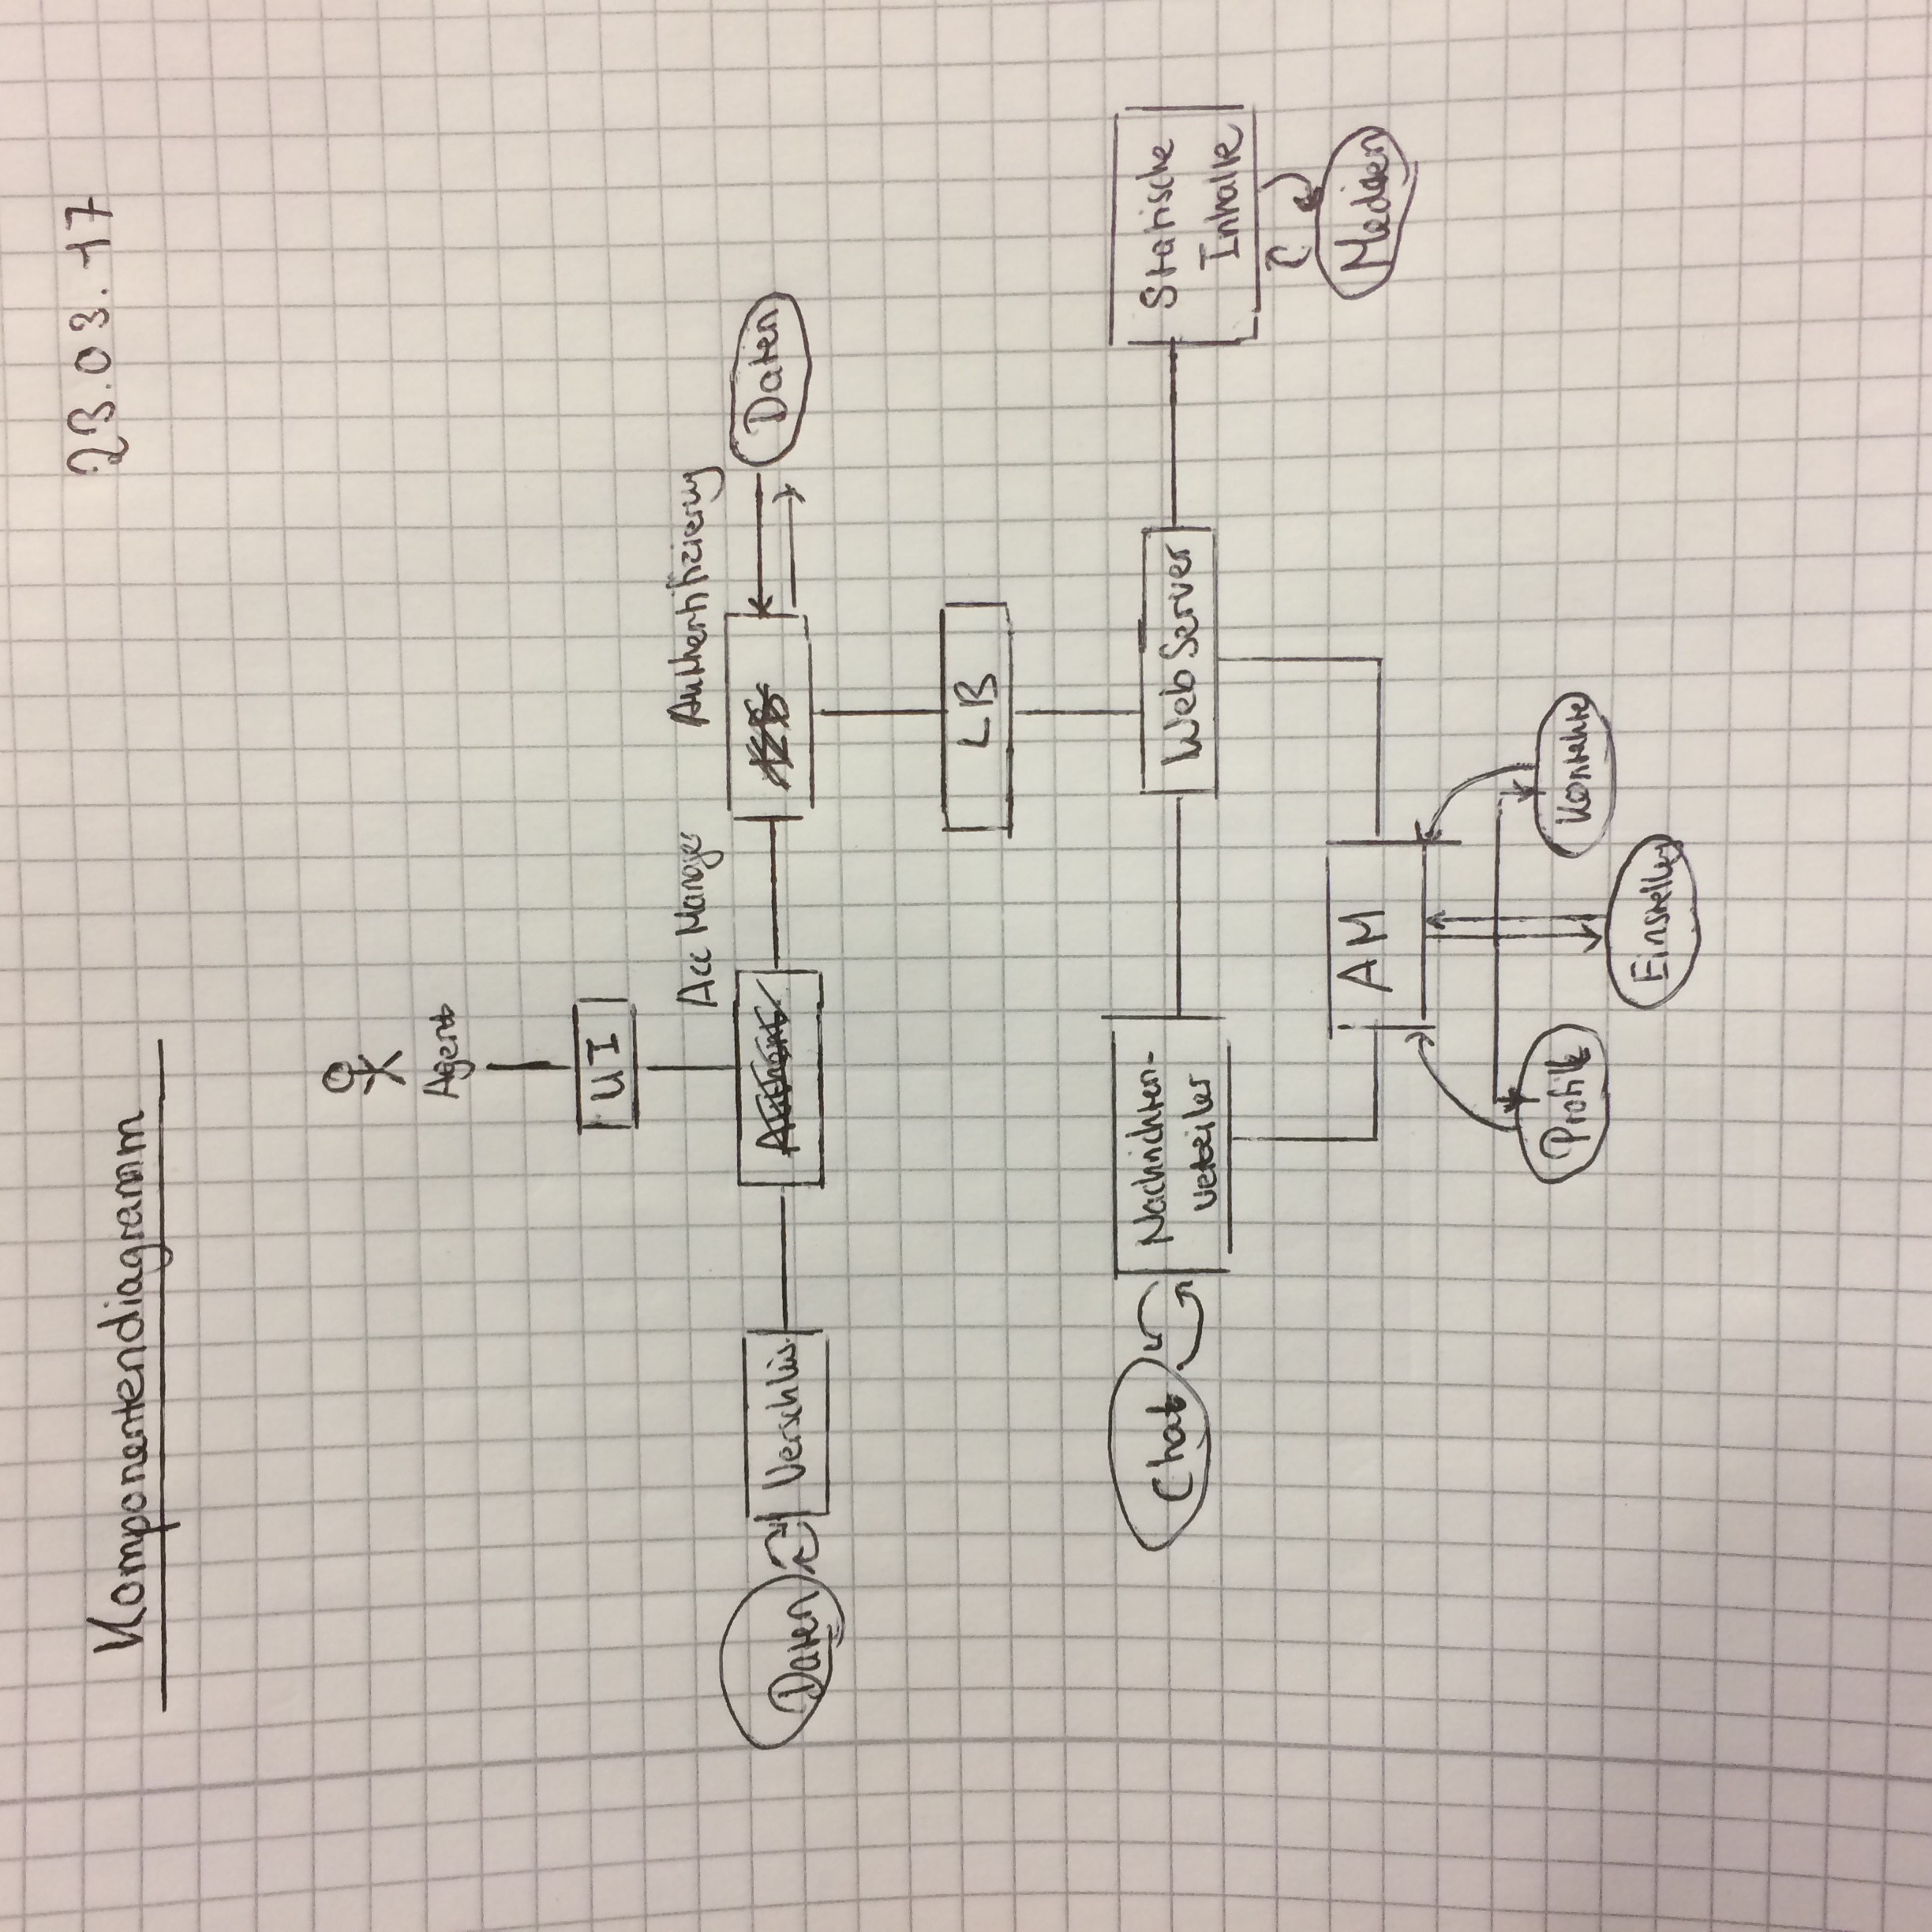 Komponentendiagramm
23.03.17
Agent
UI
Acc Manager
Authentifizierung
Daten
Verschlüs.
Authent.
LB
Daten
LB
Chat
Nachrichten-
verteiler
WebServer
Statische
Inhalte
AM
Medien
Profile
Kontakte
Einstellung